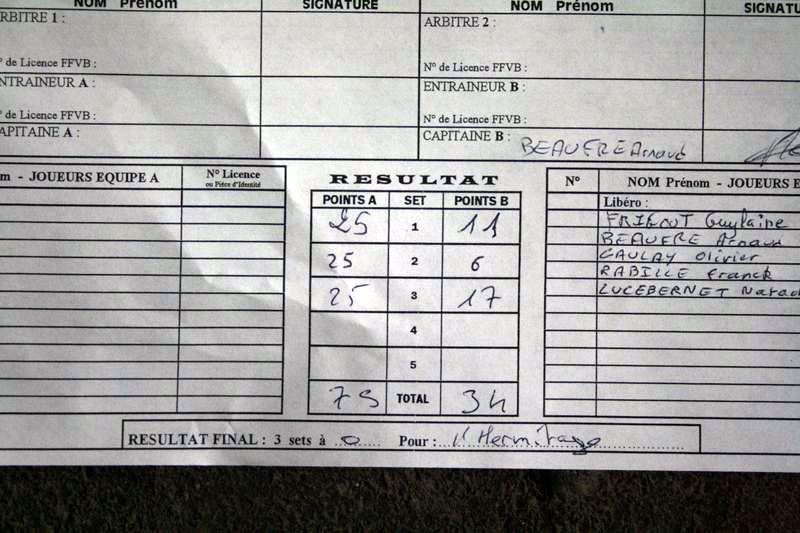 NOM Prénom SIGNATURE NOM Prénom
ARBITRE 1 : ARBITRE 2 :
N° de Licence FFVB : N° de Licence FFVB :
ENTRAINEUR A : ENTRAINEUR B :
N° de Licence FFVB : N° de Licence FFVB :
CAPITAINE A : CAPITAINE B : BEAUFRE Arnaud
JOUEURS EQUIPE A N° Licence
ou Pièce d'Identité
RESULTAT
POINTS A SET POINTS B
25 1 11
25 2 6
25 3 17
4
5
75 TOTAL 34
N° NOM Prénom - JOUEURS
Libéro :
Guylaine
BEAUFRE Arnaud
GAULAY Olivier
RABILLE Franck
LUCEBERNET
RESULTAT FINAL : 3 sets à 0 Pour : l'Hermitage